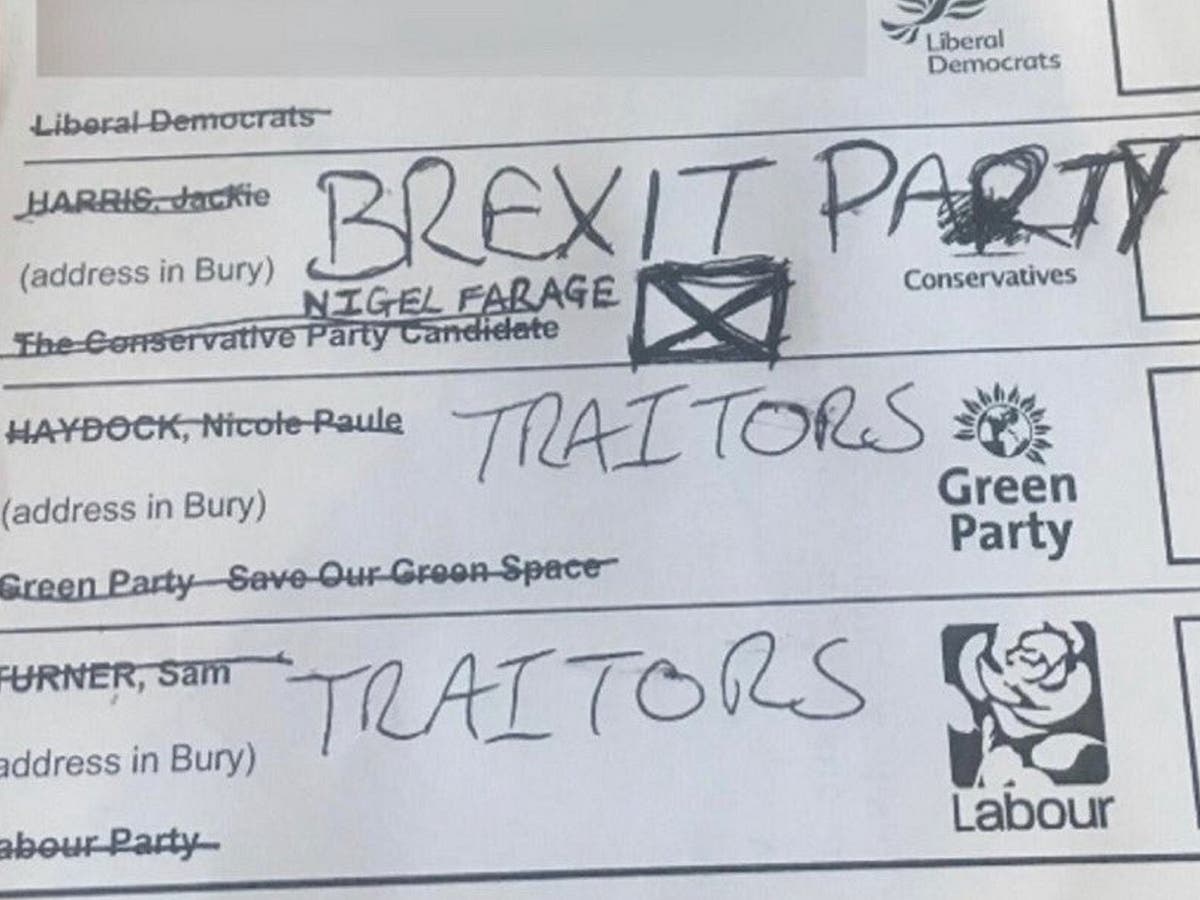 Liberal
Democrats
Liberal Democrats
HARRIS, Jackie
BREXIT PARTY
(address in Bury)
NIGEL FARAGE
Conservatives
The Conservative Party Candidate
HAYDOCK, Nicole Paule
TRAITORS
(address in Bury)
Green
Party
Green Party Save Our Green Space
TURNER, Sam
TRAITORS
address in Bury)
abour Party
Labour